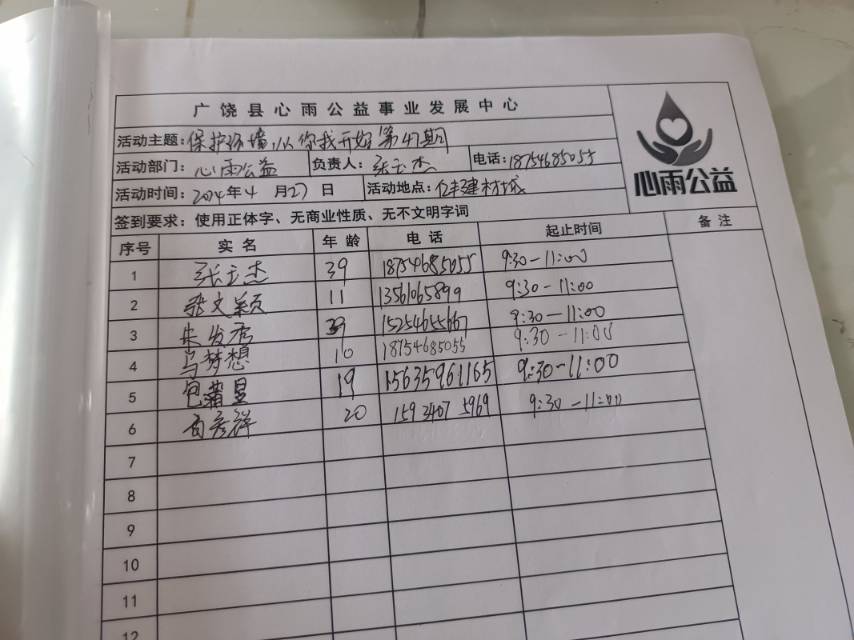 广饶县心雨公益事业发展中心
活动主题：保护环境，从你我开始第47期
活动部门：心雨公益 负责人：张玉杰 电话：18754685055
活动时间：2024年4月27日 活动地点：建材城
签到要求：使用正体字、无商业性质、无不文明字词
心雨公益
序号 实名 年龄 电话 起止时间 备注
1 张玉杰 39 18754685055 9:30-11:00
2 文颖 11 13561065899 9:30-11:00
3 朱发秀 39 15254655667 9:30-11:00
4 马梦想 10 18754685055 9:30-11:00
5 包 19 15635961165 9:30-11:00
6 彦祥 20 159 2407 5969 9:30-11:00
7
8
9
10
11
12